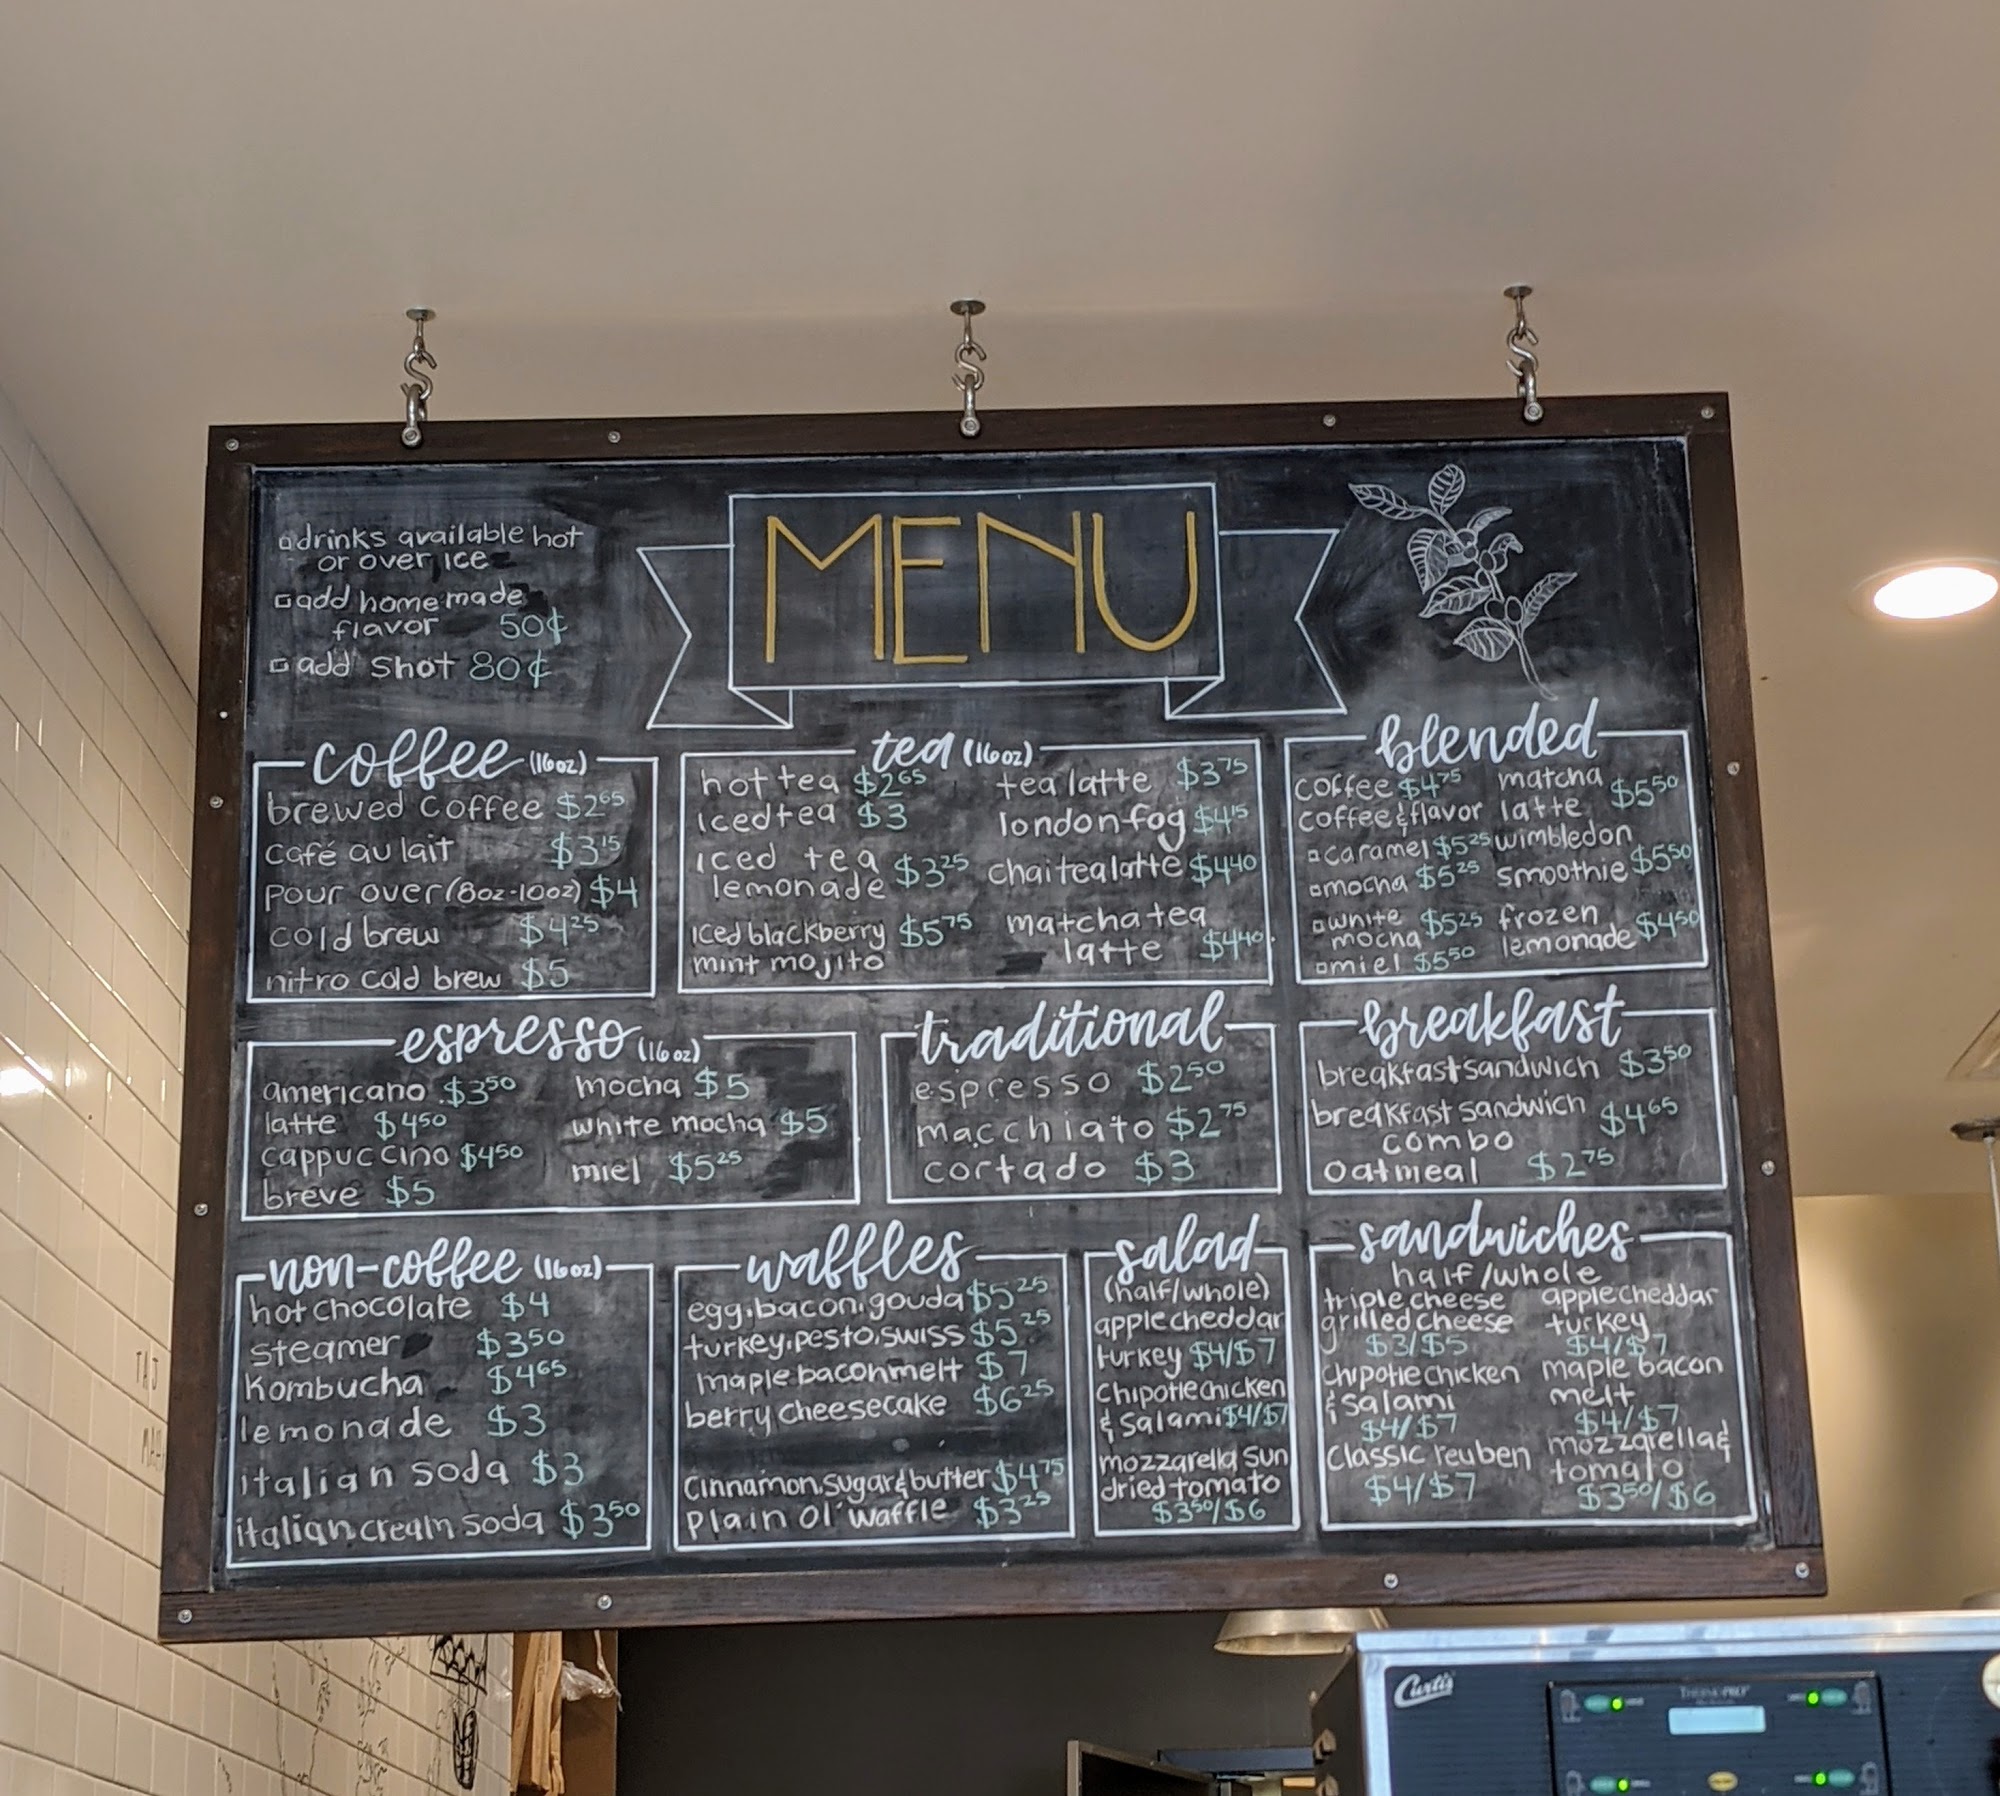 MENU
▫drinks available hot
or over ice
▫add homemade
flavor 50¢
▫add shot 80¢
coffee (16oz)
brewed coffee $2.65
café au lait $3.15
pour over (8oz-10oz) $4
cold brew $4.25
nitro cold brew $5
tea (16oz)
hot tea $2.65
iced tea $3
iced tea
lemonade $3.25
iced blackberry $5.75
mint mojito
tea latte $3.75
london fog $4.15
chai tea latte $4.40
matcha tea
latte $4.40
blended
coffee $4.75
coffee & flavor
▫caramel $5.25
▫mocha $5.25
▫white $5.25
mocha
▫miel $5.50
matcha
latte $5.50
wimbledon
smoothie $5.50
frozen
lemonade $4.50
espresso (16oz)
americano $3.50
latte $4.50
cappuccino $4.50
breve $5
mocha $5
white mocha $5
miel $5.25
traditional
espresso $2.50
macchiato $2.75
cortado $3
breakfast
breakfast sandwich $3.50
breakfast sandwich $4.65
combo
oatmeal $2.75
non-coffee (16oz)
hot chocolate $4
steamer $3.50
kombucha $4.65
lemonade $3
italian soda $3
italian cream soda $3.50
waffles
egg, bacon, gouda $5.25
turkey, pesto, swiss $5.25
maple bacon melt $7
berry cheesecake $6.25
cinnamon, sugar & butter $4.75
plain ol' waffle $3.25
salad
(half/whole)
apple cheddar
turkey $4/$7
chipotle chicken
& salami $4/$7
mozzarella sun
dried tomato
$3.50/$6
sandwiches
half/whole
triple cheese
grilled cheese
$3/$5
chipotle chicken
& salami
$4/$7
classic reuben
$4/$7
apple cheddar
turkey
$4/$7
maple bacon
melt
$4/$7
mozzarella &
tomato
$3.50/$6
Curtis